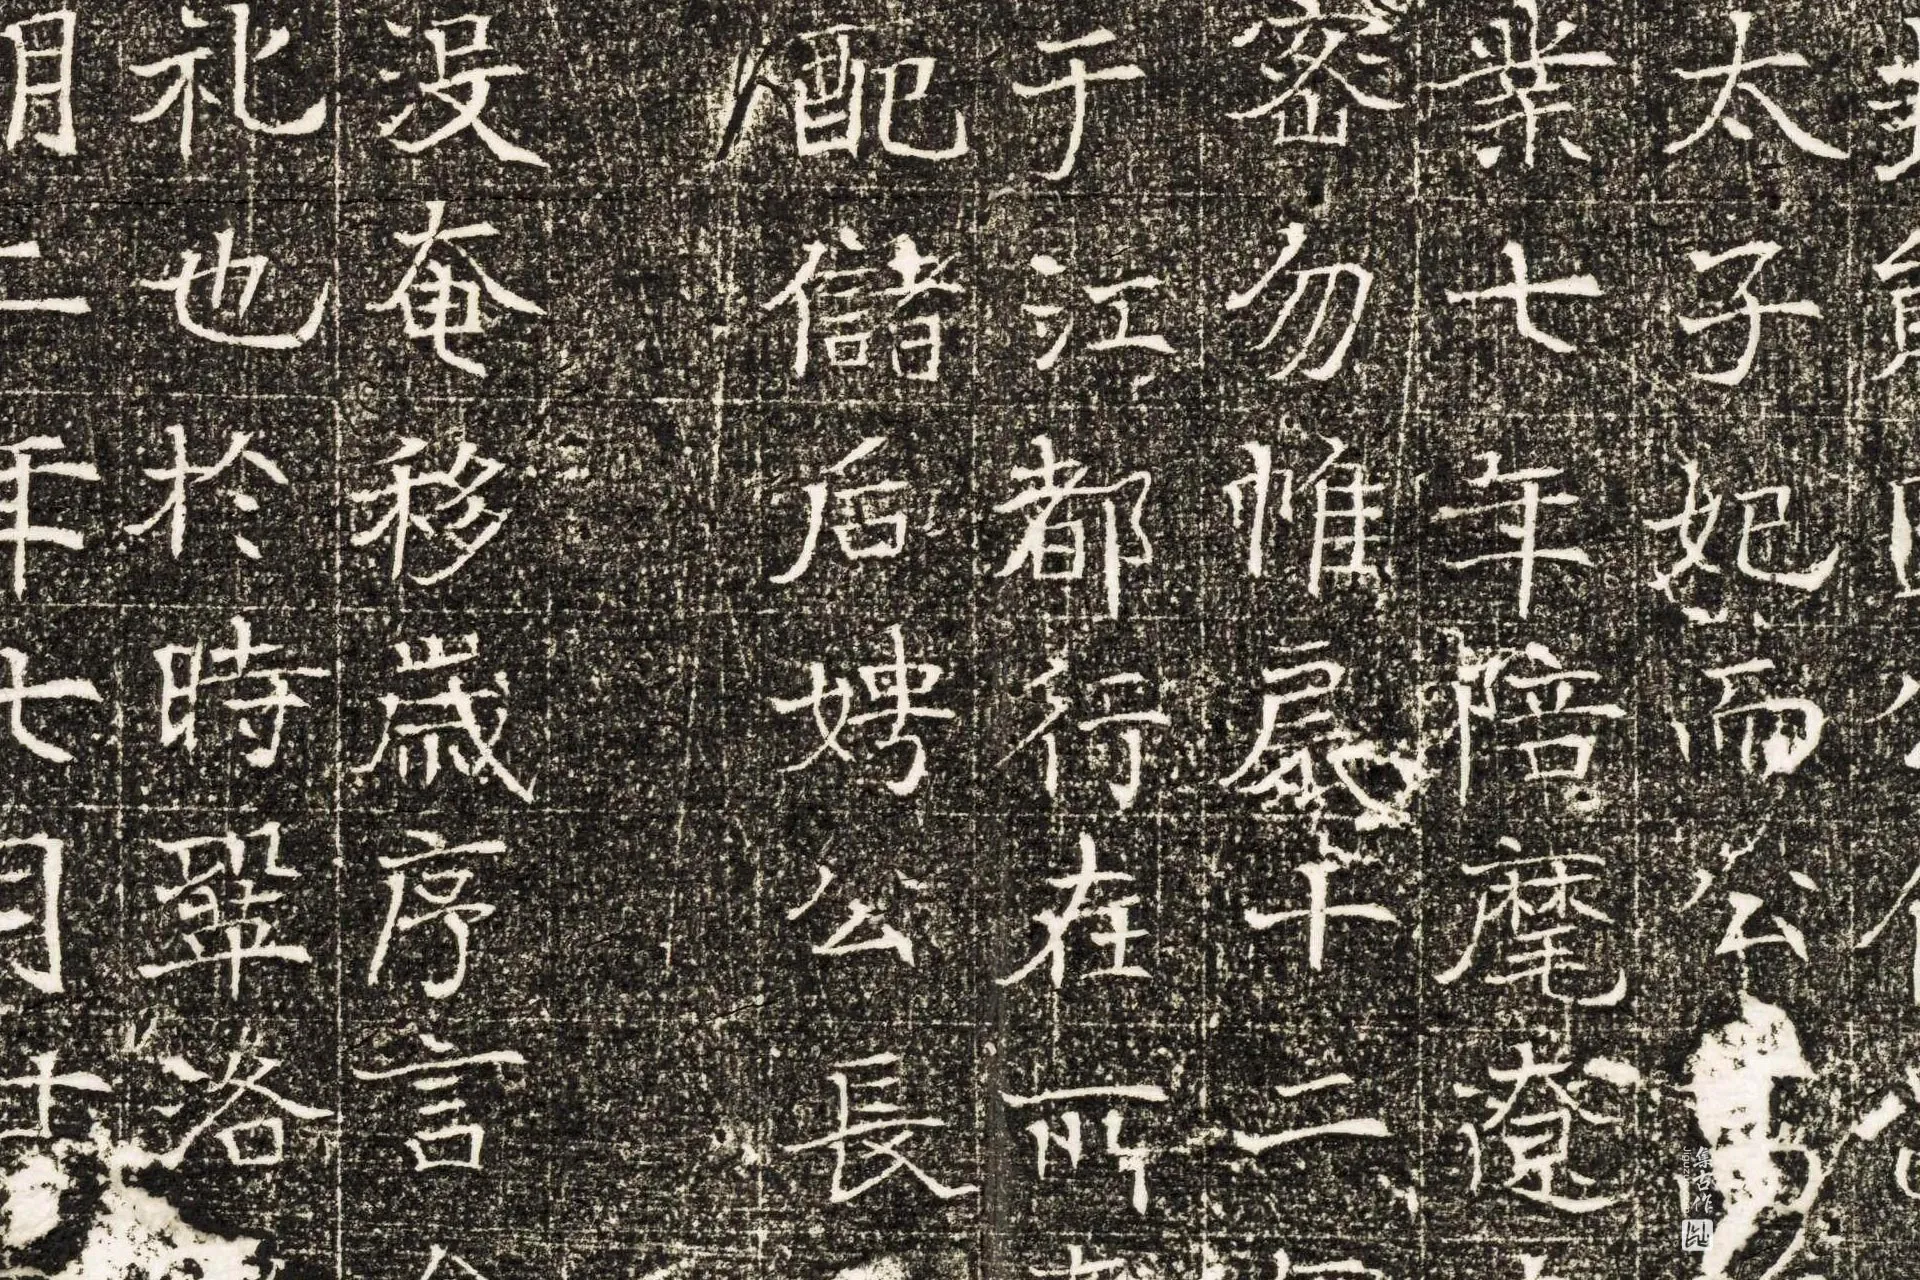 太子妃而公
業七年陪麾遼
密勿帷扆十二
于江都行在所
配儲后娉公長
没奄移歲序言
礼也於時鞏洛
明二年七月
集古作